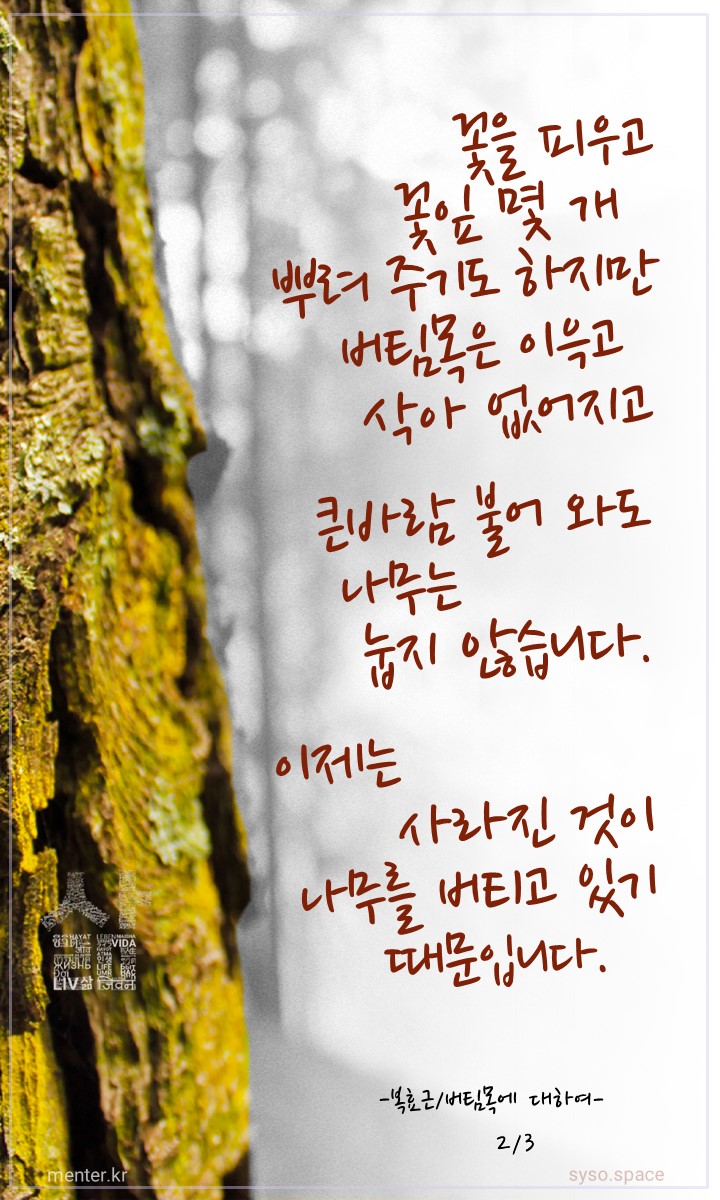 꽃을 피우고
꽃잎 몇 개
뿌려 주기도 하지만
버팀목은 이윽고
삭아 없어지고
큰바람 불어 와도
나무는
눕지 않습니다.
이제는
사라진 것이
나무를 버티고 있기
때문입니다.
HAYAT
LEBEN
VIDA
жизнь
LIFE
LIV삶
जिवन
-복효근/버팀목에 대하여-
2/3
menter.kr
syso.space